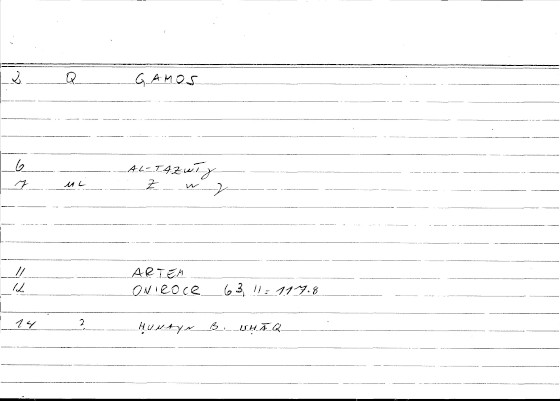 2 Q GAMOS
6 AL-TAZWĪǧ
7 ML Z W ǧ
11 ARTEM
12 ONIROCR 63, 11 = 117.8
14 ? ḤUNAYN B. ISḤĀQ